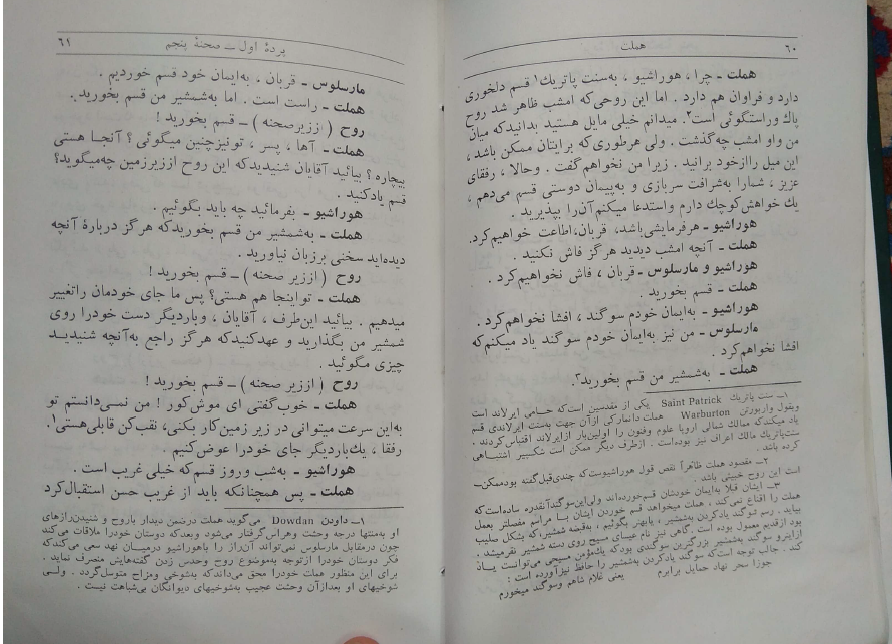 ۶۰
هملت
هملت ـ چرا ، هوراشیو ، به‌سنت پاتریك۱ قسم دلخوری
دارد و فراوان هم دارد . اما این روحی‌که امشب ظاهر شد روح
پاك وراستگوئی است۲. میدانم خیلی مایل هستید بدانیدکه میان
من واو امشب چه‌گذشت . ولی هرطوری‌که برایتان ممکن باشد ،
این میل راازخود برانید . زیرا من نخواهم‌گفت . وحالا ، رفقای
عزیز ، شمارا به‌شرافت سربازی و به‌پیمان دوستی قسم می‌دهم ،
یك خواهش‌کوچك دارم واستدعا میکنم‌آن‌را بپذیرید .
هوراشیو ـ هرفرمایشی‌باشد، قربان،اطاعت خواهیم‌کرد.
هملت ـ آنچه امشب دیدید هرگز فاش نکنید .
هوراشیو و مارسلوس ـ قربان ، فاش نخواهیم‌کرد .
هملت ـ قسم بخورید .
هوراشیو ـ به‌ایمان خودم سوگند ، افشا نخواهم‌کرد .
مارسلوس ـ من نیز به‌ایمان خودم سوگند یاد میکنم‌که
افشا نخواهم‌کرد .
هملت ـ به‌شمشیر من قسم بخورید۳.
۱ـ سنت پاتریك Saint Patrick یکی از مقدسین است‌که حامی ایرلاند است
وبقول واربورتن Warburton هملت دانمارکی ازآن جهت به‌سنت ایرلاندی قسم
یاد میکندکه ممالك شمالی اروپا علوم وفنون را اولین‌بار ازایرلاند اقتباس‌کردند .
سنت‌پاتریك مالك اعراف نیز بوده‌است . ازطرف دیگر ممکن است شکسپیر اشتباهی
کرده باشد .
۲ـ مقصود هملت ظاهراً نقض قول هوراشیوست‌که چندی‌قبل‌گفته بودممکن‌ـ
است این روح خبیثی باشد .
۳ـ ایشان قبلا به‌ایمان خودشان قسم‌خورده‌اند ولی‌این‌سوگندآنقدره ساده‌است‌که
هملت را اقناع نمی‌کند ، هملت میخواهد قسم خوردن ایشان با مراسم مفصلتر بعمل
بیاید . رسم سوگند یادکردن به‌شمشیر ، یابهتر بگوئیم ، به‌قبضه شمشیر،که بشکل صلیب
بود ازقدیم معمول بوده است .گاهی نیز نام عیسای مسیح روی دسته شمشیر نقرمیشد .
ازاینرو سوگند به‌شمشیر بزرگترین سوگندی بودکه یك‌مؤمن مسیحی می‌توانست یاد
کند . جالب توجه است‌که سوگند یادکردن به‌شمشیر را حافظ نیزآورده است :
جوزا سحر نهاد حمایل برابرم یعنی غلام شاهم وسوگند میخورم
پردهٔ اول ـ صحنهٔ پنجم
۶۱
مارسلوس ـ قربان . به‌ایمان خود قسم خوردیم .
هملت ـ راست است . اما به‌شمشیر من قسم بخورید .
روح (اززیرصحنه) ـ قسم بخورید !
هملت ـ آها ، پسر ، تونیزچنین میگوئی ؟ آنجا هستی
بیچاره ؟ بیائید آقایان شنیدیدکه این روح اززیرزمین چه‌میگوید؟
قسم یادکنید .
هوراشیو ـ بفرمائید چه باید بگوئیم .
هملت ـ به‌شمشیر من قسم بخوریدکه هرگز دربارهٔ آنچه
دیده‌اید سخنی برزبان نیاورید .
روح (اززیر صحنه) ـ قسم بخورید !
هملت ـ تواینجا هم هستی؟ پس ما جای خودمان راتغییر
میدهیم . بیائید این‌طرف ، آقایان ، وباردیگر دست خودرا روی
شمشیر من بگذارید و عهدکنیدکه هرگز راجع به‌آنچه شنیدید
چیزی مگوئید .
روح (اززیر صحنه) ـ قسم بخورید !
هملت ـ خوب‌گفتی ای موش‌کور ! من نمی‌دانستم تو
به‌این سرعت میتوانی در زیر زمین‌کار بکنی، نقب‌کن قابلی‌هستی۱.
رفقا ، یك‌باردیگر جای خودرا عوض‌کنیم .
هوراشیو ـ به‌شب وروز قسم‌که خیلی غریب است .
هملت ـ پس همچنانکه باید از غریب حسن استقبال‌کرد
۱ـ داودن Dowdan می‌گوید هملت درضمن دیدار باروح و شنیدن‌رازهای
او به‌منتها درجه وحشت وهراس‌گرفتار می‌شود وبعدکه دوستان خودرا ملاقات می‌کند
چون درمقابل مارسلوس نمی‌تواند آن‌راز را باهوراشیو درمیان نهد سعی می‌کندکه
فکر دوستان خودرا ازتوجه به‌موضوع روح وحدس زدن گفته‌هایش منصرف نماید .
برای این منظور هملت خودرا محق می‌داندکه به‌شوخی ومزاح متوسل‌گردد . ولی
شوخیهای او بعدازآن وحشت عجیب به‌شوخیهای دیوانگان بی‌شباهت نیست .